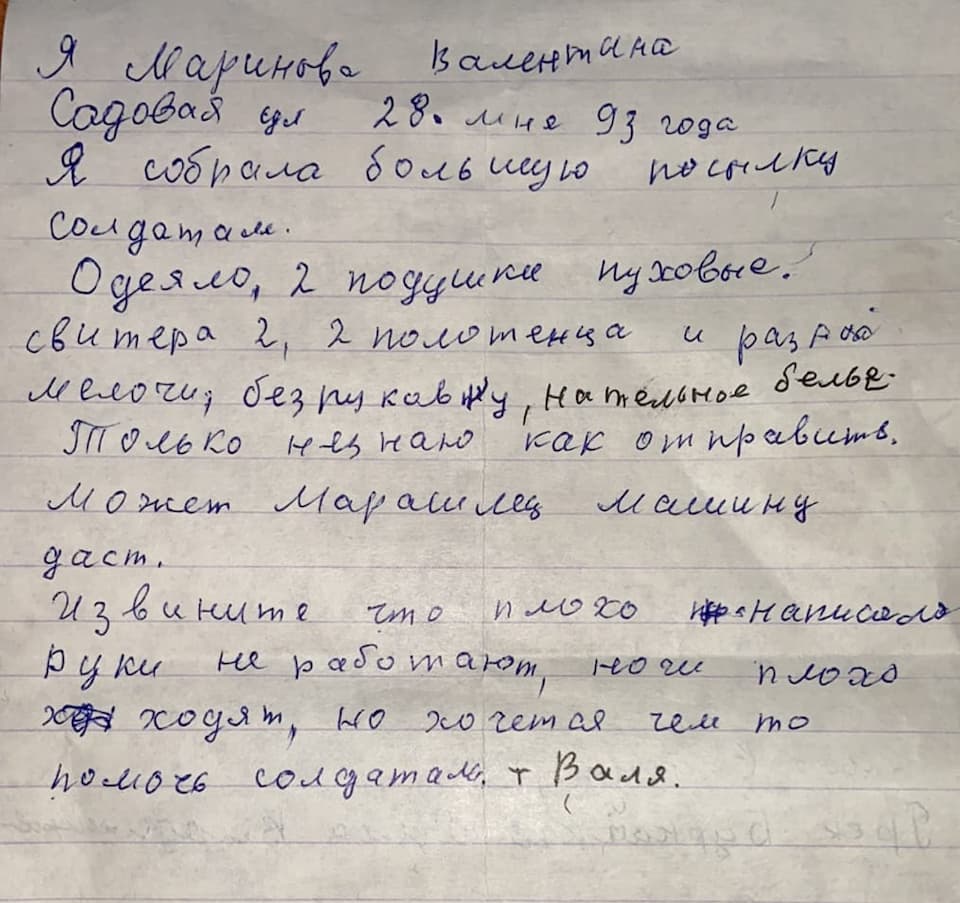 Я Маринова Валентина
Садовая ул 28. мне 93 года
Я собрала большую посылку
солдатам.
Одеяло, 2 подушки пуховые.
свитера 2, 2 полотенца и разной
мелочи, безрукавку, нательное белье.
Только незнаю как отправить.
Может Марашлец машину
даст.
Извините что плохо написала
руки не работают, ноги плохо
ходят, но хочется чем то
помочь солдатам. т Валя.